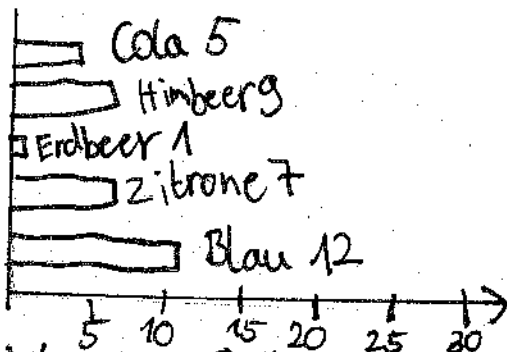 Cola 5
Himbeer 9
Erdbeer 1
Zitrone 7
Blau 12
5 10 15 20 25 30